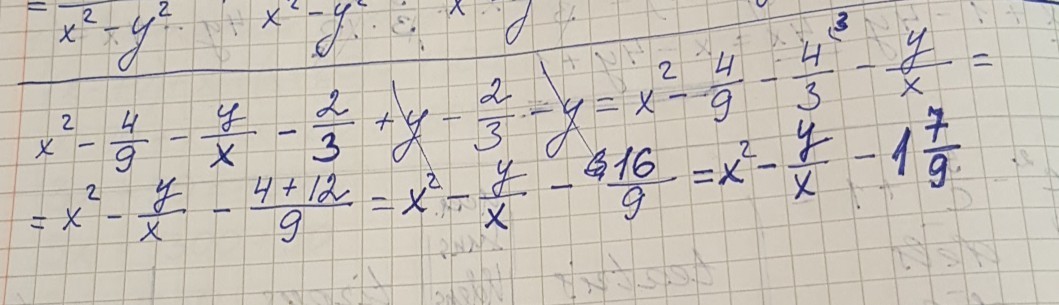 = x² - y² x² - y² x y
x² - 4/9 - y/x - 2/3 + y - 2/3 - y = x² - 4/9 - 4/3 ³ - y/x =
= x² - y/x - 4+12/9 = x² - y/x - 16/9 = x² - y/x - 1 7/9